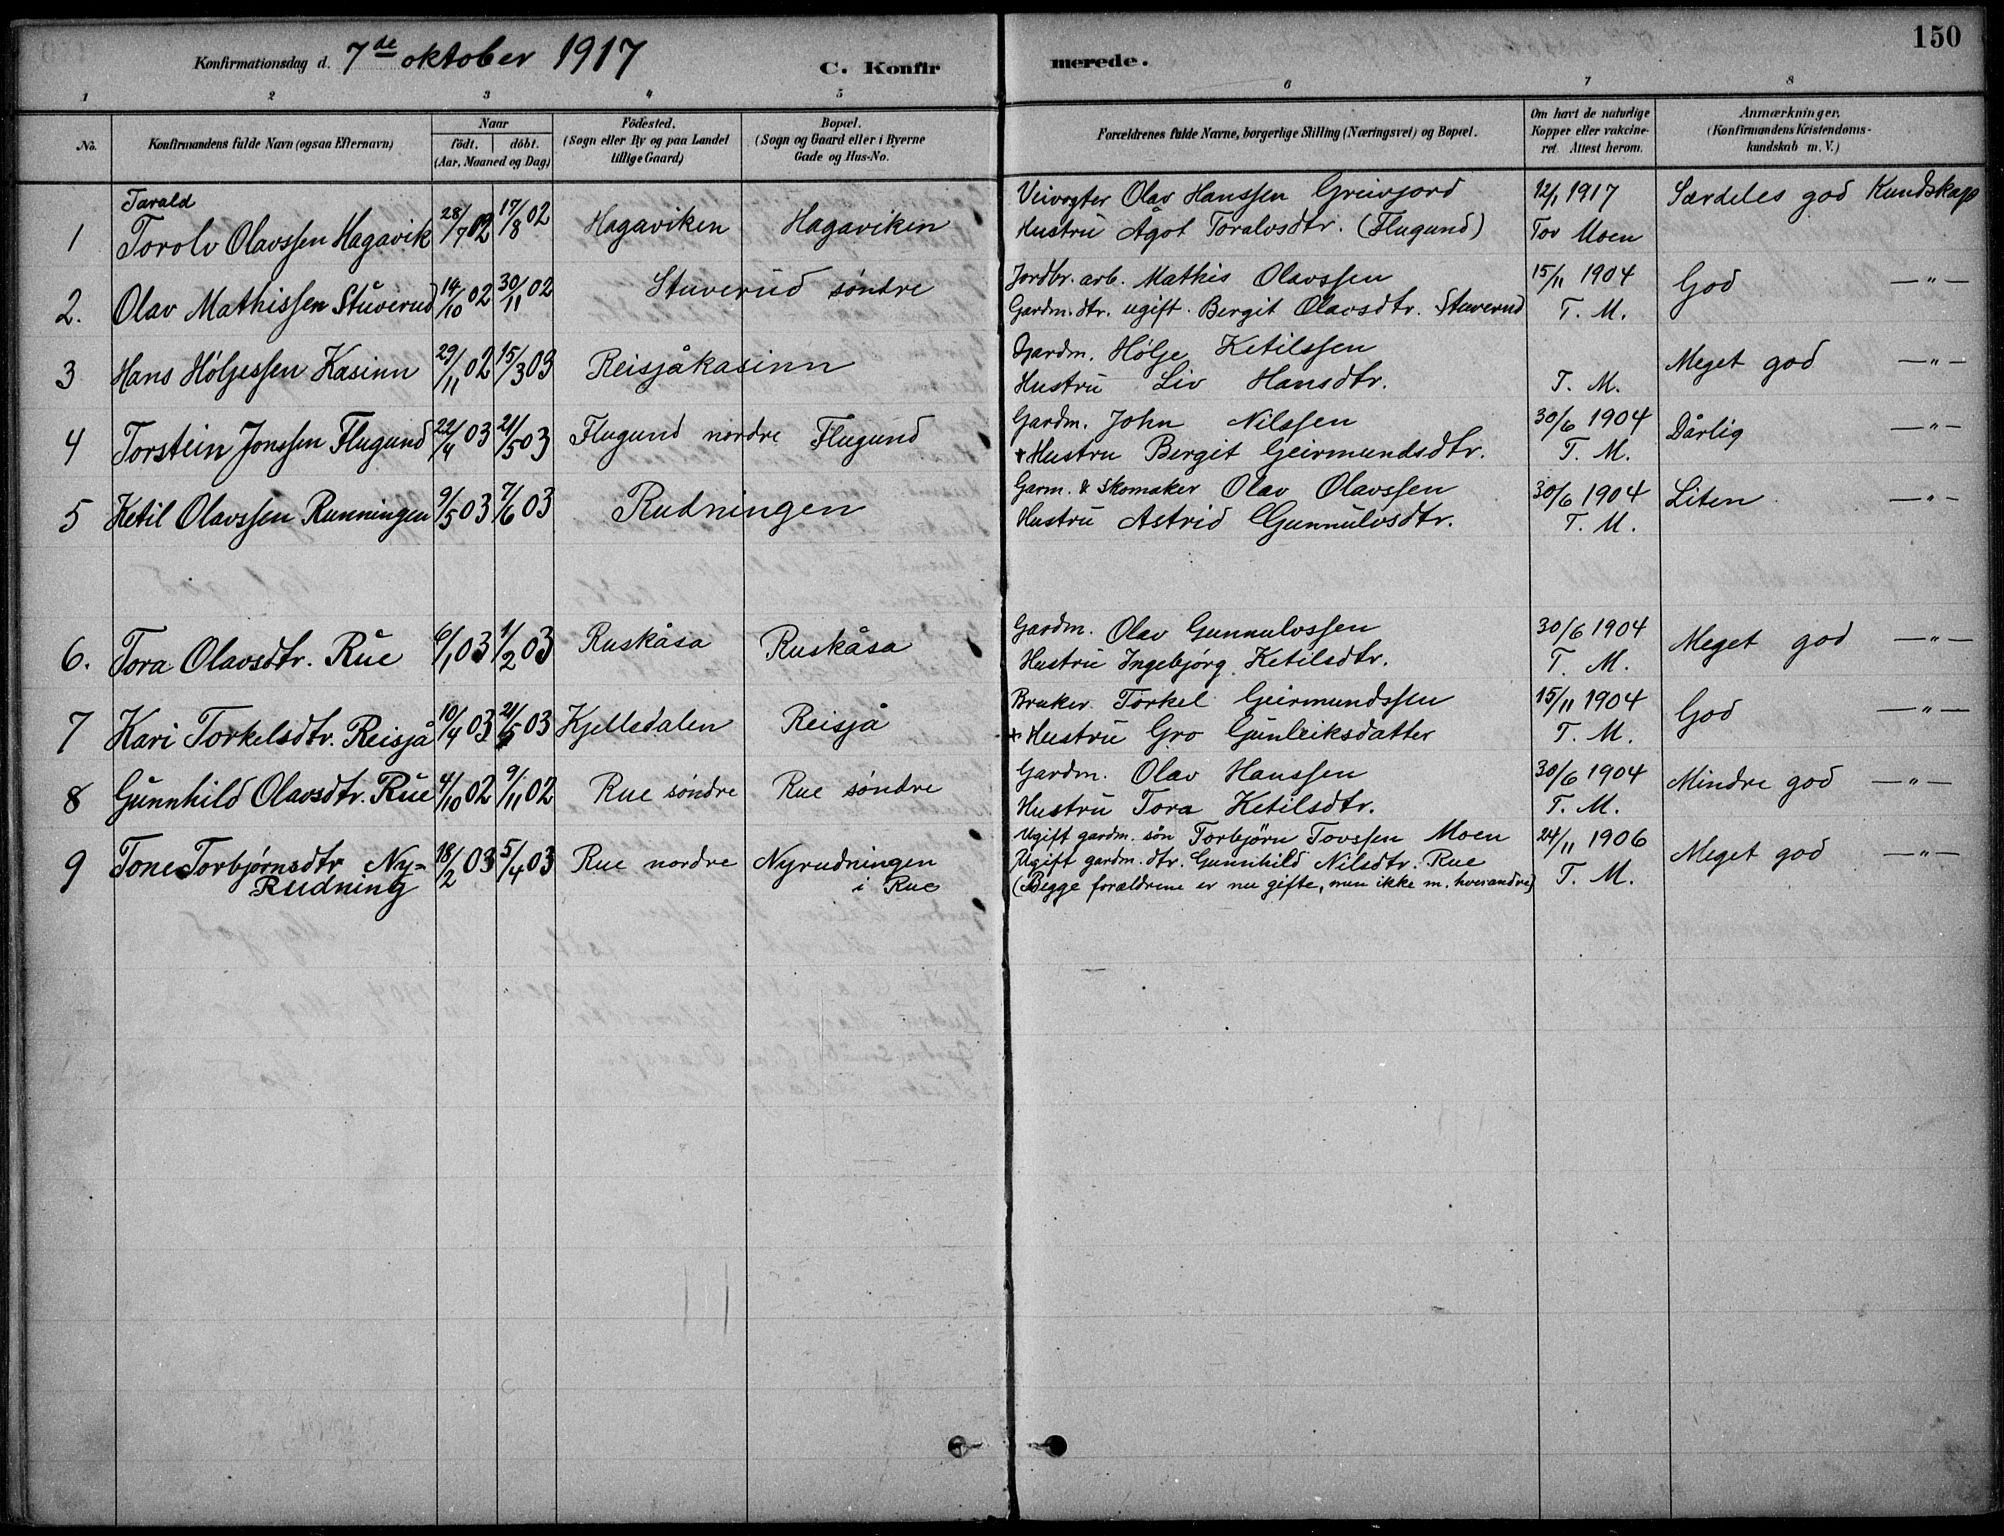 150
Konfirmationsdag d. 7de oktober 1917
C. Konfirmerede.
1 2 3 4 5 6 7 8
No. Konfirmandens fulde Navn (ogsaa Efternavn)
Naar
födt. döbt.
(Aar, Maaned og Dag)
Födested.
(Sogn eller By og paa Landet
tillige Gaard)
Bopæl.
(Sogn og Gaard eller i Byerne
Gade og Hus-No.
Forældrenes fulde Navne, borgerlige Stilling (Næringsvei) og Bopæl.
Om havt de naturlige
Kopper eller vakcine-
ret. Attest herom.
Anmærkninger.
(Konfirmandens Kristendoms-
kundskab m. V.)
Tarald
1 Torolv Olavssen Hagavik 28/7 02 17/8 02 Hagaviken Hagaviken
Veivogter Olav Hanssen Greivjord 12/1 1917 Særdeles god Kundskap
Hustru Ågot Toralvsdtr. (Flugund) Tov Moen
2. Olav Mathissen Stuverud 19/10 02 30/11 02 Stuverud søndre
Jordbr. arb. Mathis Olavssen 15/11 1904 God —"—
Gardm. dtr. ugift. Bergit Olavsdtr. Stuverud T. M.
3 Hans Høljessen Kasinn 29/11 02 15/3 03 Reisjåkasinn
Gardm. Hølje Ketilssen Meget god —"—
Hustru Liv Hansdtr. T. M.
4 Torstein Jonssen Flugund 22/4 03 21/5 03 Flugund nordre Flugund
Gardm. John Nilssen 30/6 1904 Dårlig —"—
+ Hustru Bergit Geirmundsdtr. T. M.
5 Ketil Olavssen Runningen 9/5 03 7/6 03 Rudningen
Garm. & skomaker Olav Olavssen 30/6 1904 Liten —"—
Hustru Astrid Gunnulvsdtr. T. M.
6. Tora Olavsdtr. Rue 6/1 03 1/2 03 Ruskåsa Ruskåsa
Gardm. Olav Gunnulvssen 30/6 1904 Meget god —"—
Hustru Ingebjørg Ketilsdtr. T. M.
7 Kari Torkelsdtr. Reisjå 10/4 03 21/5 03 Kjelledalen Reisjå
Bruker Torkel Geirmundssen 15/11 1904 God —"—
+ Hustru Gro Gunleiksdatter T. M.
8 Gunnhild Olavsdtr. Rue 4/10 02 9/11 02 Rue søndre Rue søndre
Gardm. Olav Hanssen 30/6 1904 Mindre god —"—
Hustru Tora Ketilsdtr. T. M.
9 Tone Torbjørnsdtr Ny-
Rudning 18/2 03 5/4 03 Rue nordre Nyrudningen
i Rue
Ugift gardm. søn Torbjörn Tovssen Moen 24/11 1906 Meget god —"—
Ugift gardm. dtr. Gunnhild Nilsdtr. Rue
(Begge forældrene er nu gifte, men ikke m. hverandre) T. M.